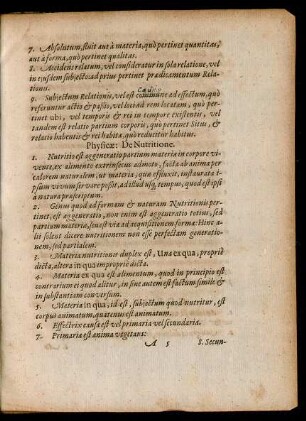 7. Absolutum, fluit aut à materia, quò pertinet quantitas,
aut à forma, quò pertinet qualitas.
8. Accidens relatum, vel consideratur in sola relatione, vel
in ejusdem subjecto: ad prius pertinet prædicamentum Rela-
tionis.
9. Subjectum Relationis, vel est ad effectum, quò
referuntur actio & passio, vel locus ad rem locatam, quò per-
tinet ubi, vel temporis & rei in tempore existentis, vel
tandem est relatio partium corporis, quò pertinet Situs, &
relatio habentis & rei habitæ, quò reducitur habitus.
Physicæ: De Nutritione.
1. Nutritio est aggeneratio partium materia in corpore vi-
vente, ex alimento extrinsecus admoto, facta ab anima per
calorem naturalem sui materia, qua effluxit, instaurata
ipsum vivum servare possit, ad illud usq; tempus, quod est ipsi
à natura præscriptum.
2. Genus quod ad formam & naturam Nutritionis per-
tinet, est aggeneratio, non enim est aggeneratio totius, sed
partium materia, seu est via ad acquisitionem formæ: Hinc a-
liter solent dicere nutritionem non esse perfectam generatio-
nem, sed partialem.
3. Materia nutritionis duplex est, Una ex qua, propriè
dicta, altera in qua impropriè dicta.
4. Materia ex qua est alimentum, quod in principio est
contrarium ei quod alitur, in fine autem est factum simile &
in substantiam conversum.
5. Materia in qua, id est, subjectum quod nutritur, est
corpus animatum, quatenus est animatum.
6. Effectrix causa est vel primaria vel secundaria.
7. Primaria est anima vegetans:
A 5 8. Secun-